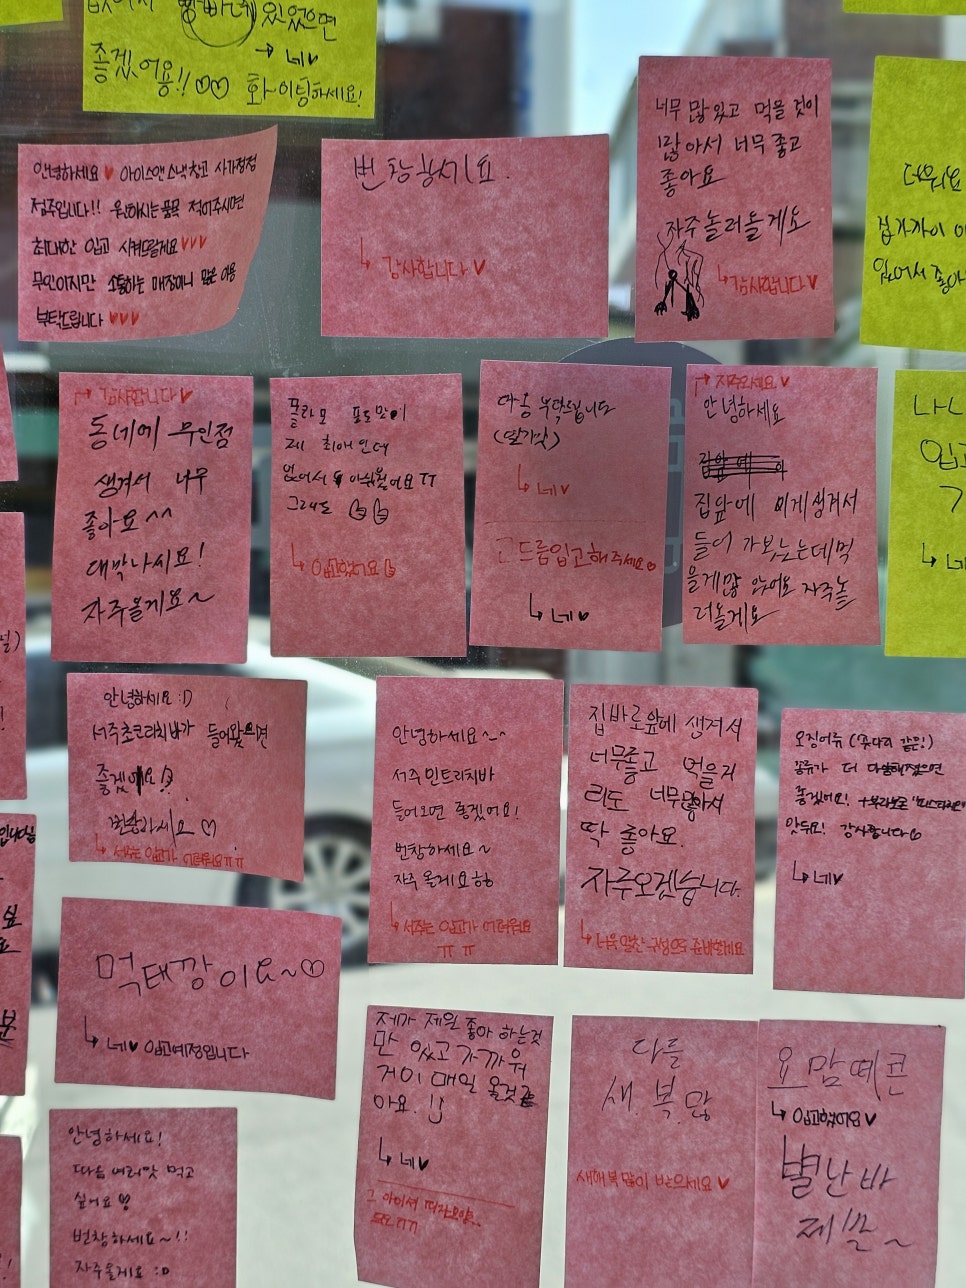 있었으면
→ 네♥
좋겠어용!! ♡♡ 화이팅하세요!
안녕하세요♥ 아이스앤스낵창고 사가정점
점주입니다!! 원하시는 품목 적어주시면
최대한 입고 시켜드릴게요♥♥♥
무인이지만 소통하는 매장이니 많은 이용
부탁드립니다 ♥♥♥
번창하시기요.
↳ 감사합니다♥
너무 많있고 먹을 것이
많아서 너무 좋고
좋아요
자주놀러올게요
↳감사합니다♥
더워요
집가까이
있어서 좋아
↱ 감사합니다♥
동네에 무인점
생겨서 너무
좋아요^^
대박나시요!
자주올게요~
폴라포 포도맛이
제 최애인데
없어서 아쉬웠어요ㅠㅠ
그래도
↳ 입고했어요
부탁드립니다
(딸기맛)
↳ 네♥
고드름입고해주세요♡
↳ 네♥
↱ 자주오세요♥
안녕하세요
집앞에
집앞에 이게생겨서
들어가보았는데먹
을게많았어요 자주놀
러올게요
입고
↳ 네
안녕하세요 :D
서주초코리치바가 들어왔으면
좋겠어요!
번창하세요♡
↳ 서주는 입고가 어려워요ㅠㅠ
안녕하세요~~
서주민트리치바
들어오면 좋겠어요!
번창하세요~
자주올게요ㅎㅎ
↳ 서주는 입고가 어려워요
ㅠㅠ
집바로앞에 생겨서
너무좋고 먹을거
리도 너무많아서
딱 좋아요.
자주오겠습니다.
↳ 더욱 알찬 구성으로 준비할게요
오징어류 (꽁다리 같은!)
종류가 더 다양해졌으면
좋겠어요!
맛두요! 감사합니다
↳ 네♥
먹태깡이요~♡
↳ 네♥ 입고예정입니다
제가 제일 좋아 하는것
만 있고 가까워
거이 매일 올것같
아요. :)
↳ 네♥
그 아이셔
다들
새.복.많
새해복많이 받으세요♥
요맘떼콘
↳ 입고했어요♥
별난바
제발~
안녕하세요!
다음 여러맛 먹고
싶어요
번창하세요~!!
자주올게요 :D